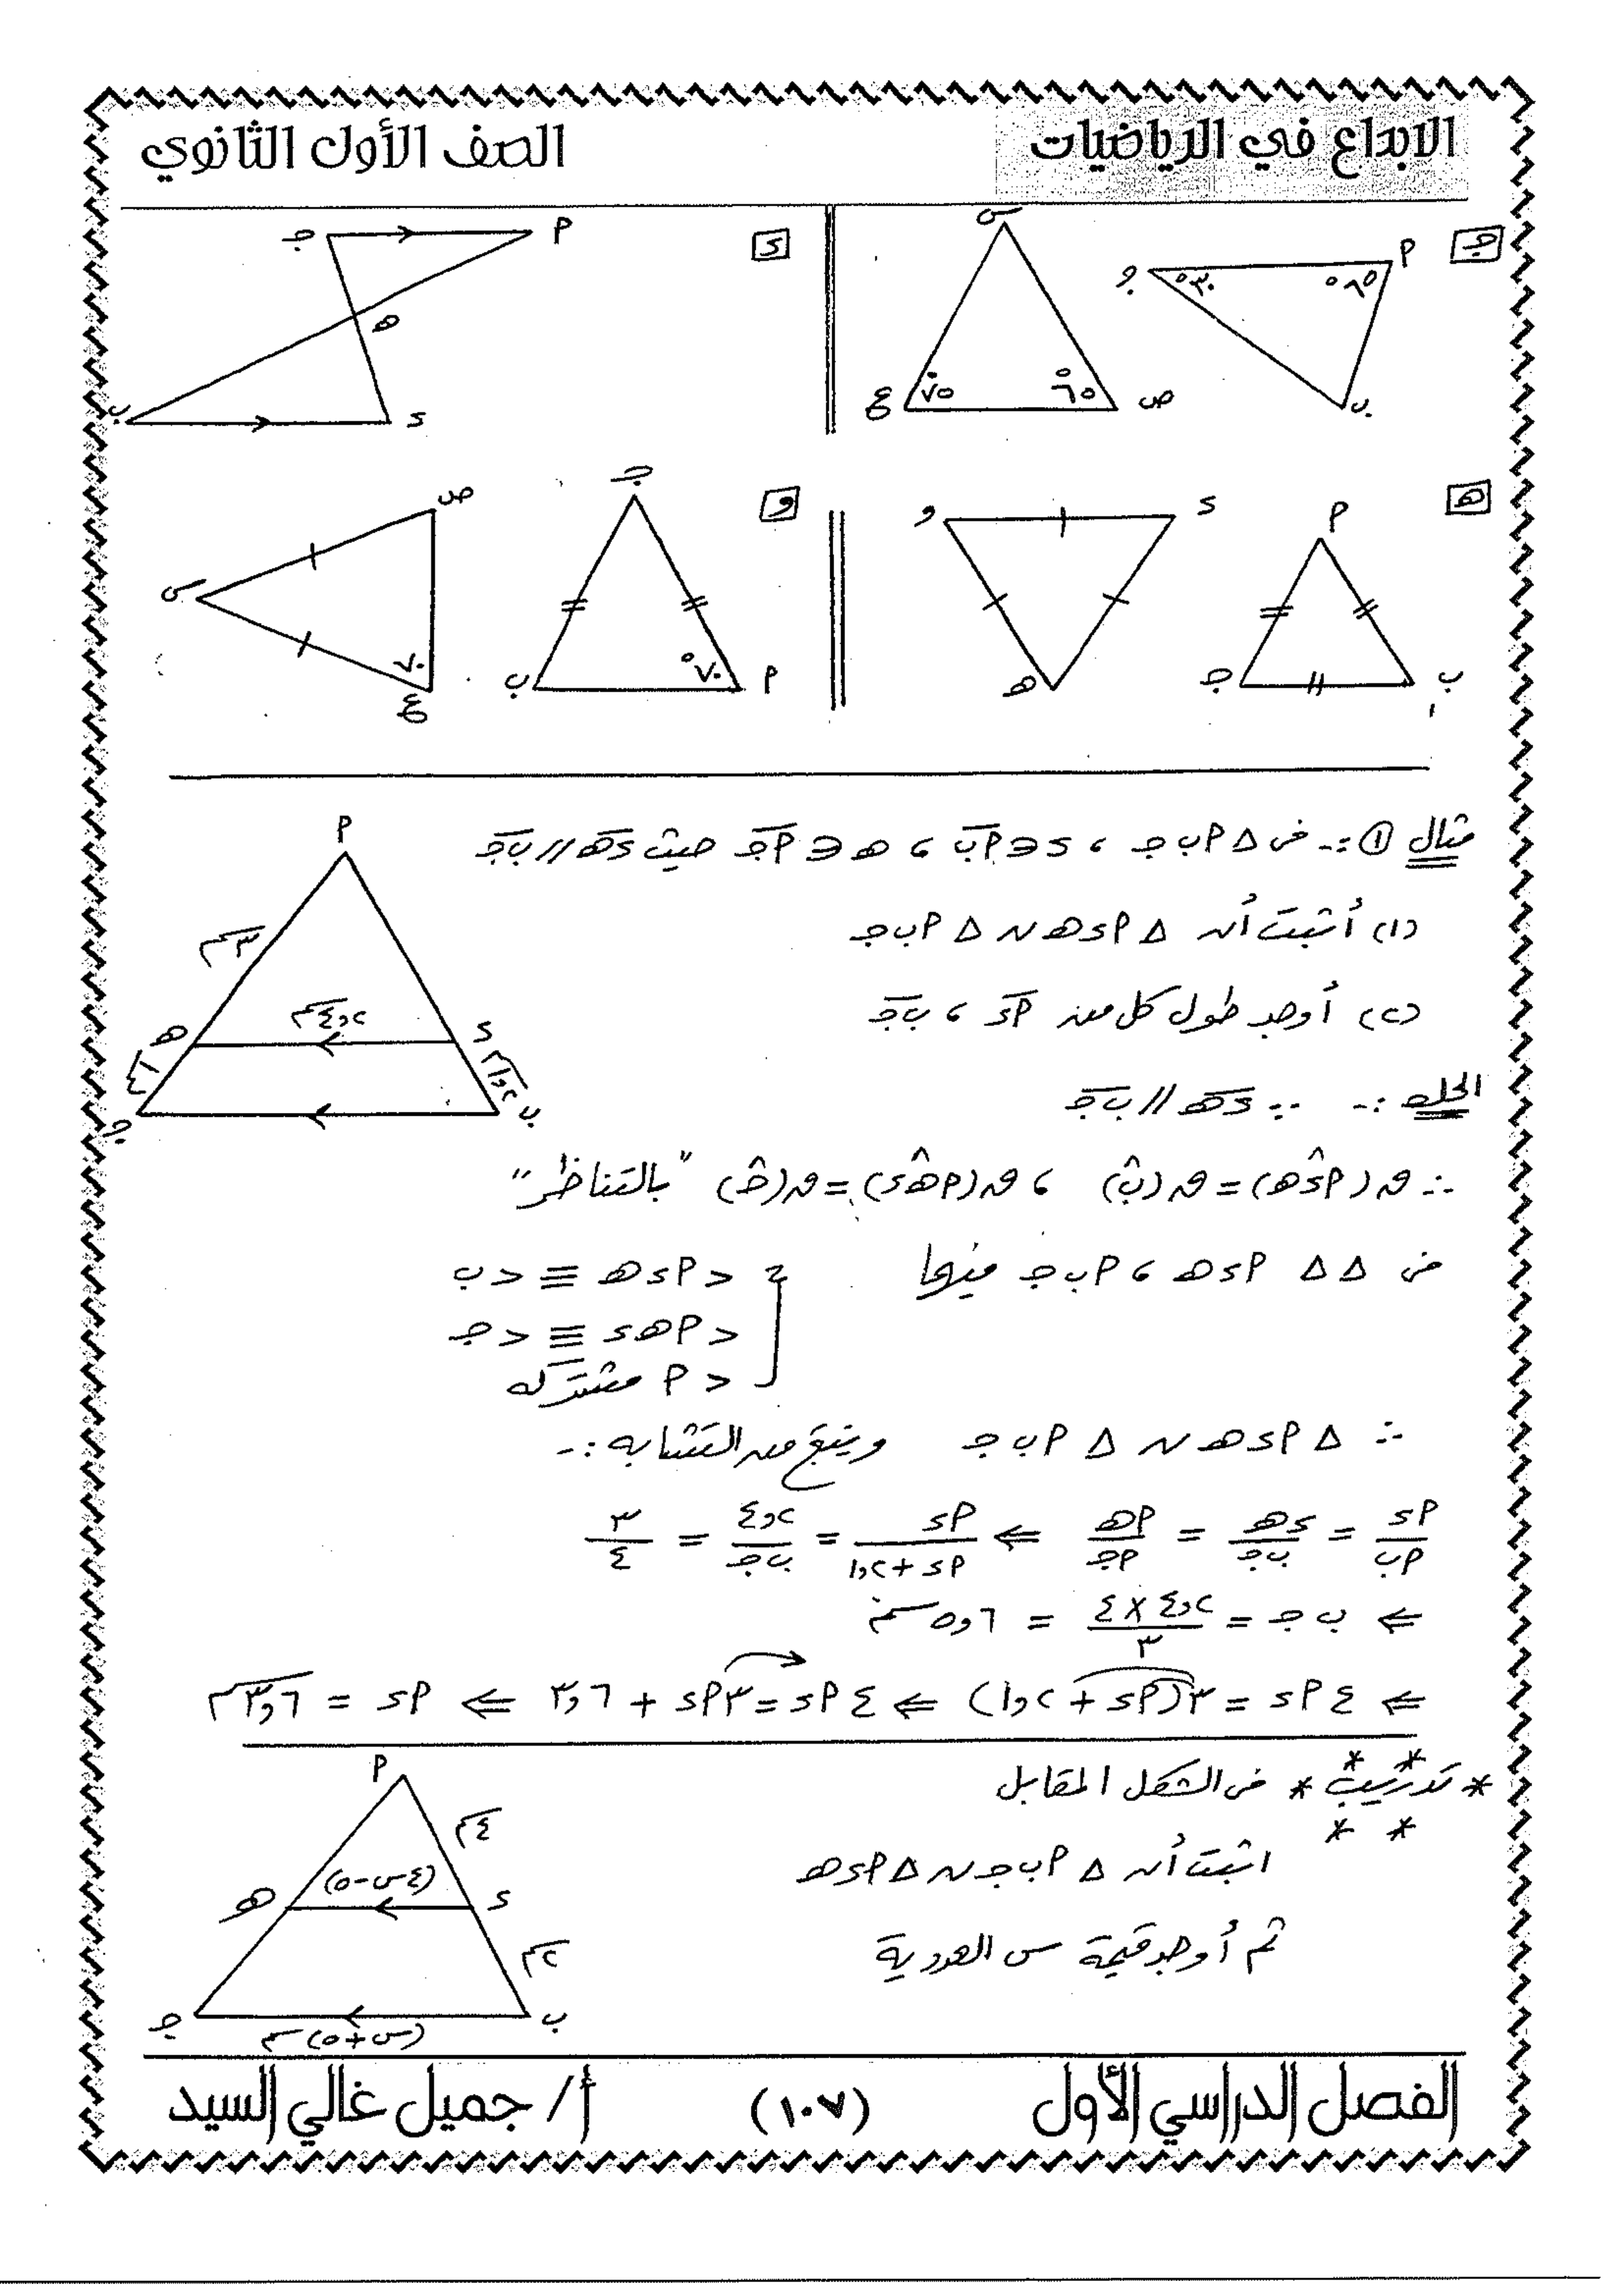 الابداع في الرياضيات
الصف الأول الثانوي
جـ
أ
°٦٥
°٣٠
جـ
ب
س
ص
°٦٥
°٧٥
ع
د
أ
جـ
هـ
د
ب
هـ
أ
ب
جـ
د
و
هـ
و
جـ
أ
°٧٠
ب
ص
س
٧٠
ع
مثال ① :- فى Δ أ ب جـ ، د ∈ أب ، هـ ∈ أجـ حيث دهـ // بجـ
(١) أثبت أن Δ أ د هـ ~ Δ أ ب جـ
(٢) أوجد طول كل من أد ، بجـ
أ
٣سم
٤,٢سم
هـ
د
١سم
١,٢سم
جـ
ب
الحل :- ∵ دهـ // بجـ
∴ ق(أدهـ) = ق(ب) ، ق(أهـد) = ق(جـ) "بالتناظر"
فى Δ Δ أ د هـ ، أ ب جـ فيهما
> أ د هـ ≡ > ب
> أ هـ د ≡ > جـ
> أ مشتركه
∴ Δ أ د هـ ~ Δ أ ب جـ وينتج من التشابه :-
أد/أب = دهـ/بجـ = أهـ/أجـ ⇐ أد/(أد + ١,٢) = ٤,٢/بجـ = ٣/٤
⇐ ب جـ = (٤,٢ × ٤)/٣ = ٥,٦ سم
⇐ ٤ أد = ٣(أد + ١,٢) ⇐ ٤ أد = ٣أد + ٣,٦ ⇐ أد = ٣,٦سم
* تدريب * فى الشكل المقابل
اثبت أن Δ أ ب جـ ~ Δ أ د هـ
ثم أوجد قيمة س العددية
أ
٤سم
(٤س-٥)
هـ
د
٢سم
جـ
ب
(س+٥)سم
الفصل الدراسي الأول
(١٠٧)
أ/ جميل غالي السيد